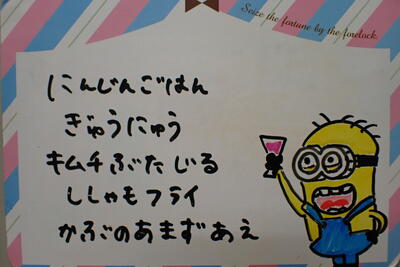 Seize the fortune by the forelock.
にんじんごはん
ぎゅうにゅう
キムチぶたじる
ししゃもフライ
かぶのあまずあえ